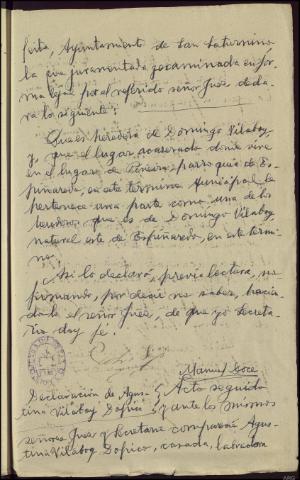 feita, Ayuntamiento de San Saturnino
la que juramentada y examinada en for-
ma legal por el referido señor Juez decla-
ra lo siguiente:
Que es heredera de Domingo Vilaboy
y que el lugar acasarado donde vive
en el lugar de parroquia de Es-
piñaredo, en este término Municipal le
pertenece una parte como una de los
herederos, que lo es de Domingo Vilaboy
natural este de Espiñaredo, en este térmi-
no.
Así lo declaró, previa lectura, no
firmando, por decir no saber, hacien-
dolo el señor Juez, de que yo Secreta-
rio doy fé.
Manuel
Declaración de Agus- Acto seguido
tina Vilaboy Dopico y ante los mismos
señores Juez y Secretario comparece Agus-
tina Vilaboy Dopico, casada, labradora